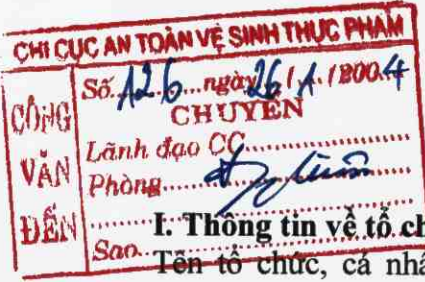 CHI CỤC AN TOÀN VỆ SINH THỰC PHẨM
CÔNG VĂN ĐẾN
Số 126 ngày 26/1/2004
CHUYỂN
Lãnh đạo CC
Phòng
Sao
I. Thông tin về tổ ch
Tên tổ chức, cá nhâ